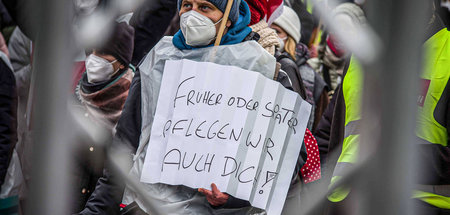 FRÜHER ODER SPÄTER
PFLEGEN WIR
AUCH DICH!